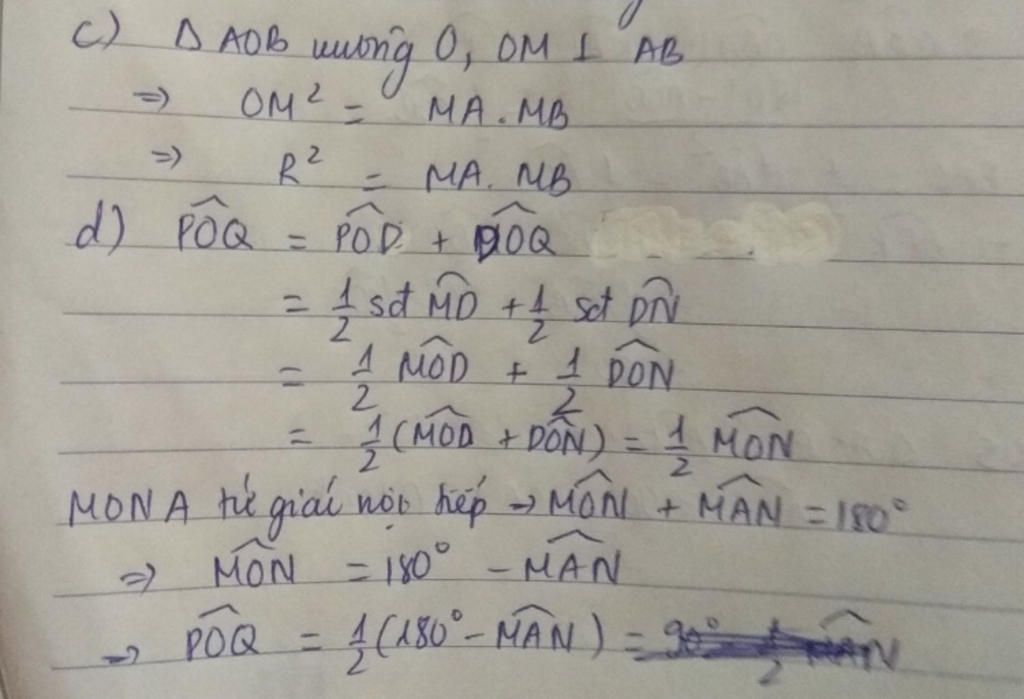 c) Δ AOB vuông O, OM ⊥ AB
=> OM² = MA.MB
=> R² = MA.MB
d) \widehat{POQ} = \widehat{POD} + \widehat{DOQ}
= 1/2 sđ \widehat{MD} + 1/2 sđ \widehat{DN}
= 1/2 \widehat{MOD} + 1/2 \widehat{DON}
= 1/2 (\widehat{MOD} + \widehat{DON}) = 1/2 \widehat{MON}
MONA tứ giái nội tiếp → \widehat{MON} + \widehat{MAN} = 180°
=> \widehat{MON} = 180° - \widehat{MAN}
=> \widehat{POQ} = 1/2 (180° - \widehat{MAN}) =